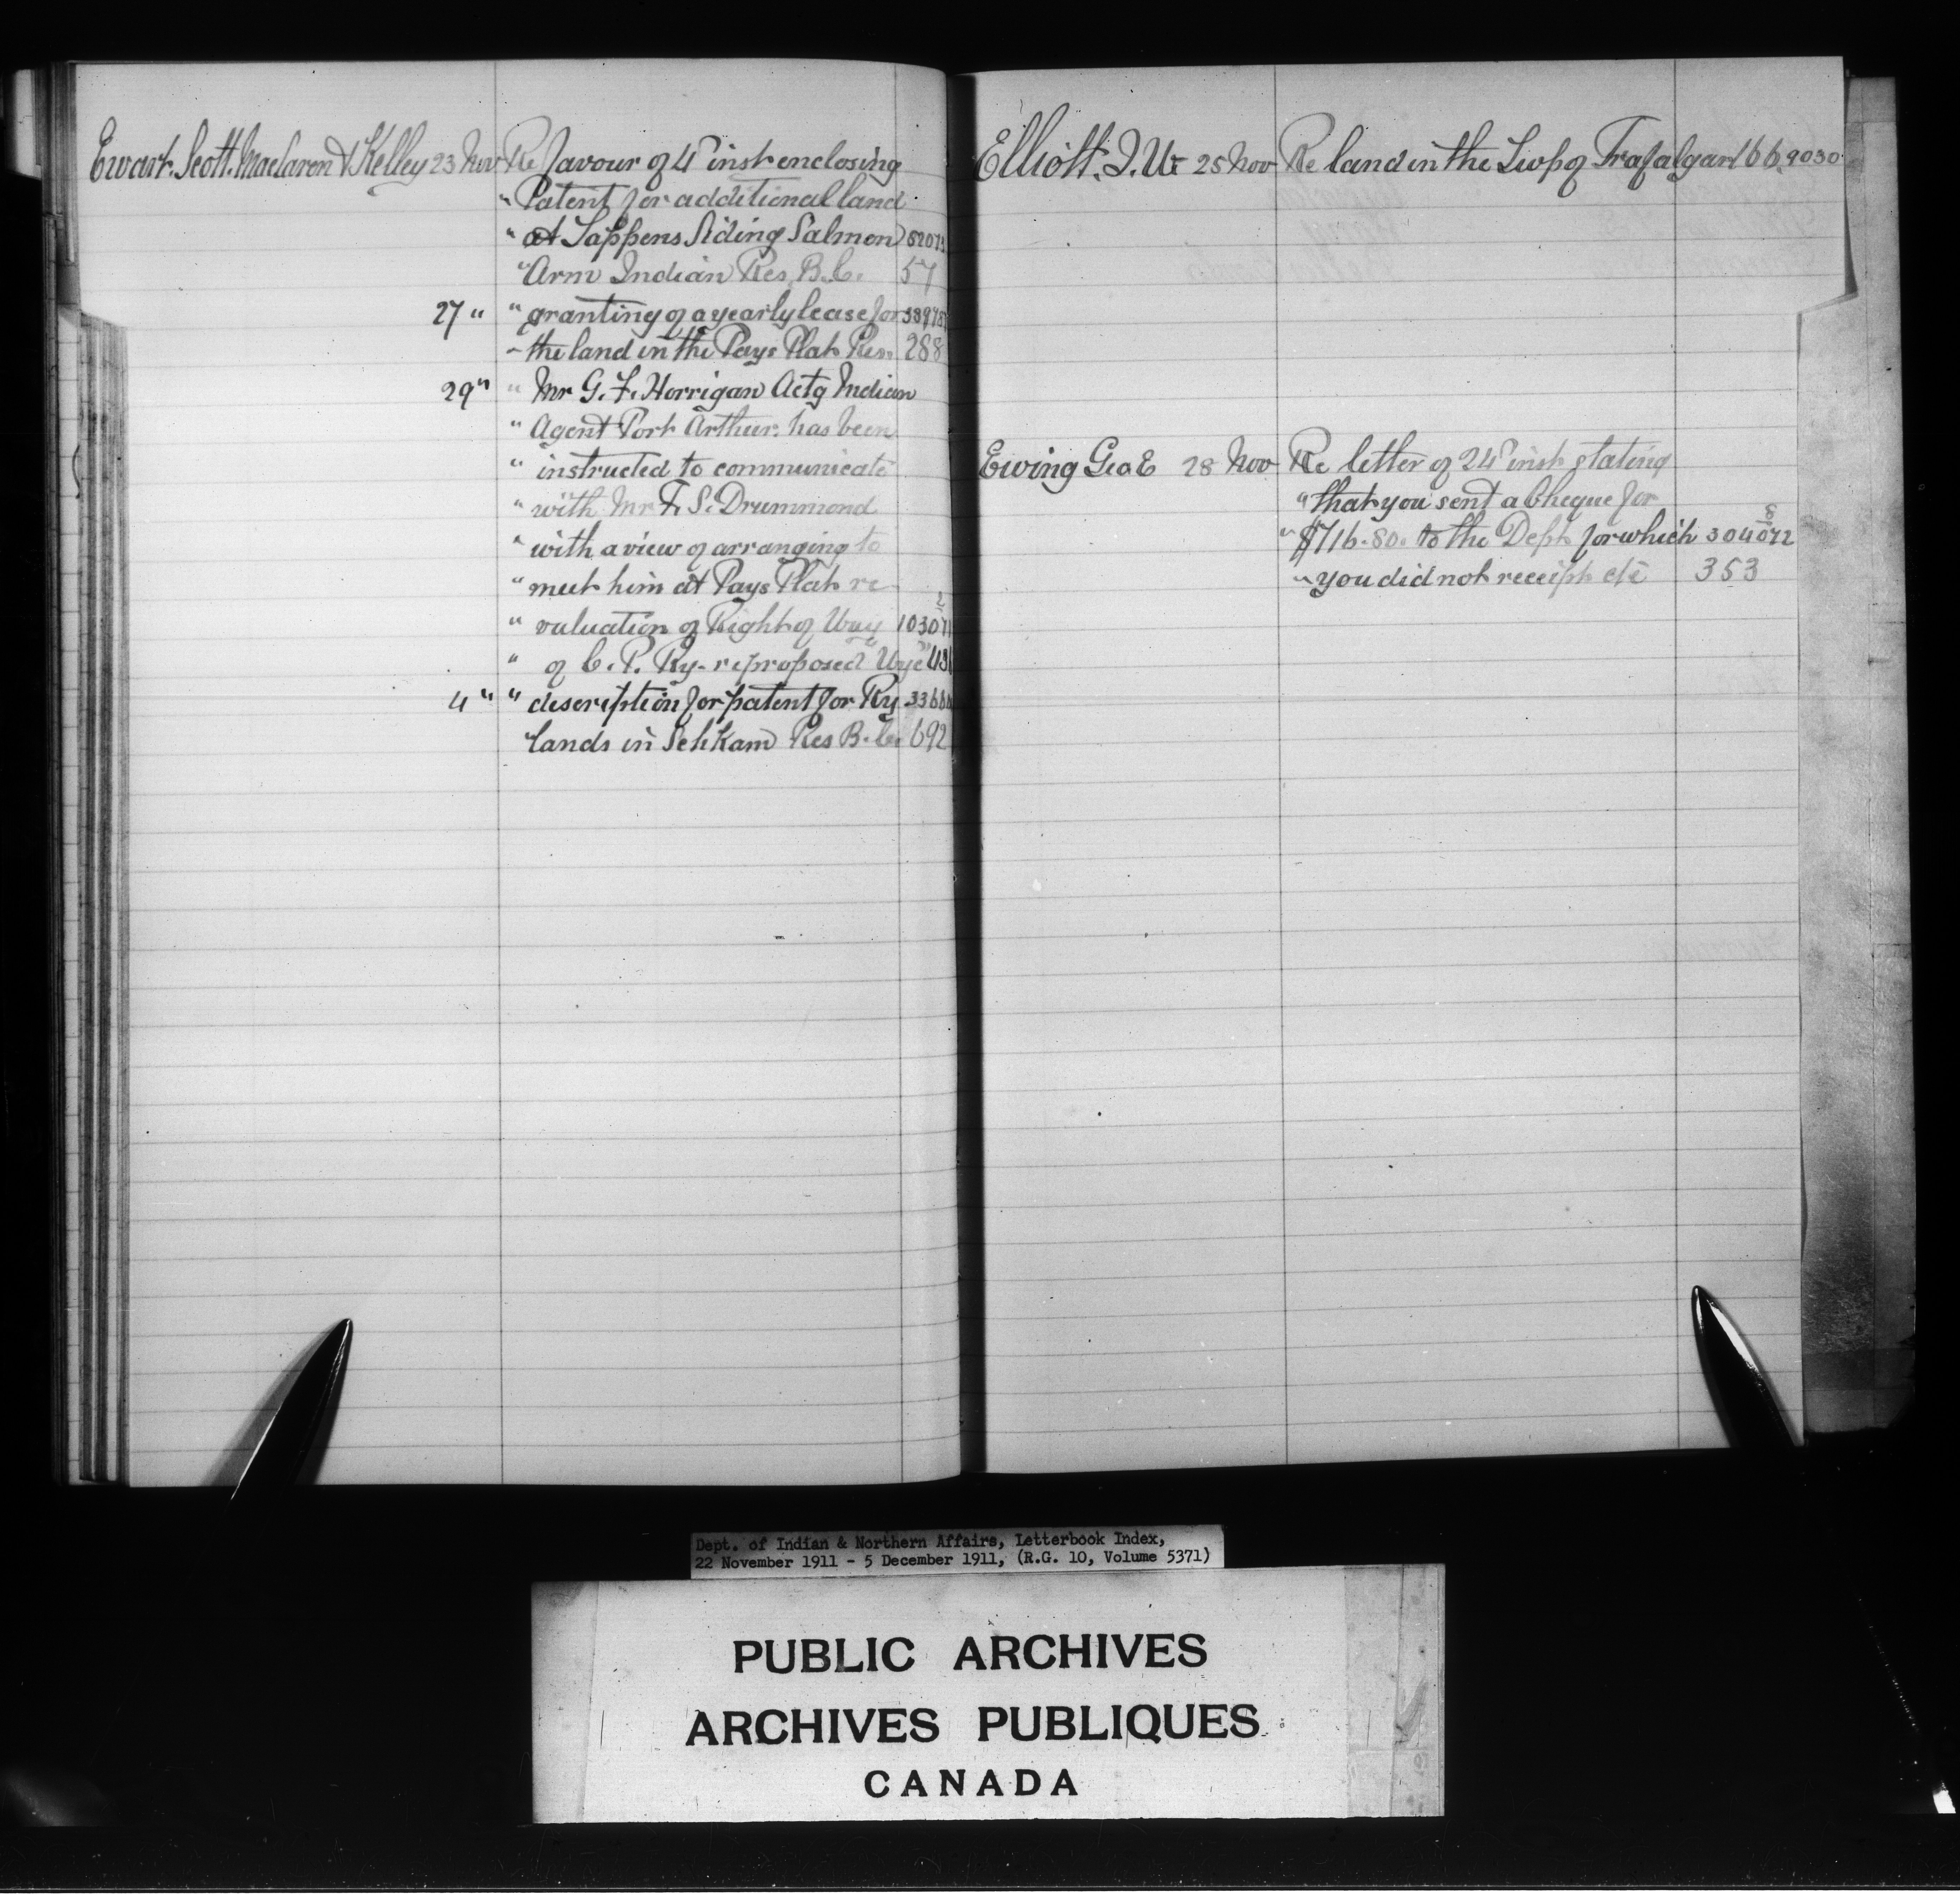 Ewart. Scott. MacLaren & Kelley 23 Nov Re favour of 4th inst enclosing
" Patent for additional land
" at Tappens Siding Salmon 5207
" Arm Indian Res. B.C. 57
27 " " granting of a yearly lease for
" the land in the Pays Plat Res. 288
29 " " Mr G. F. Horrigan Actg Indian
" Agent Port Arthur. has been
" instructed to communicate
" with Mr F. S. Drummond
" with a view of arranging to
" meet him at Pays Plat re
" valuation of Right of Way
" of C. P. Ry. re proposed "Wye"
4 " " description for patent for Ry
" lands in Res B.C. 692
Elliott. J. W. 25 Nov Re land in the Twp of Trafalgar 166. 9030
Ewing Geo E 28 Nov Re letter of 24th inst stating
" that you sent a Cheque for
" $716.80. to the Dept for which
" you did not receipt etc 353
Dept. of Indian & Northern Affairs, Letterbook Index,
22 November 1911 - 5 December 1911, (R.G. 10, Volume 5371)
PUBLIC ARCHIVES
ARCHIVES PUBLIQUES
CANADA